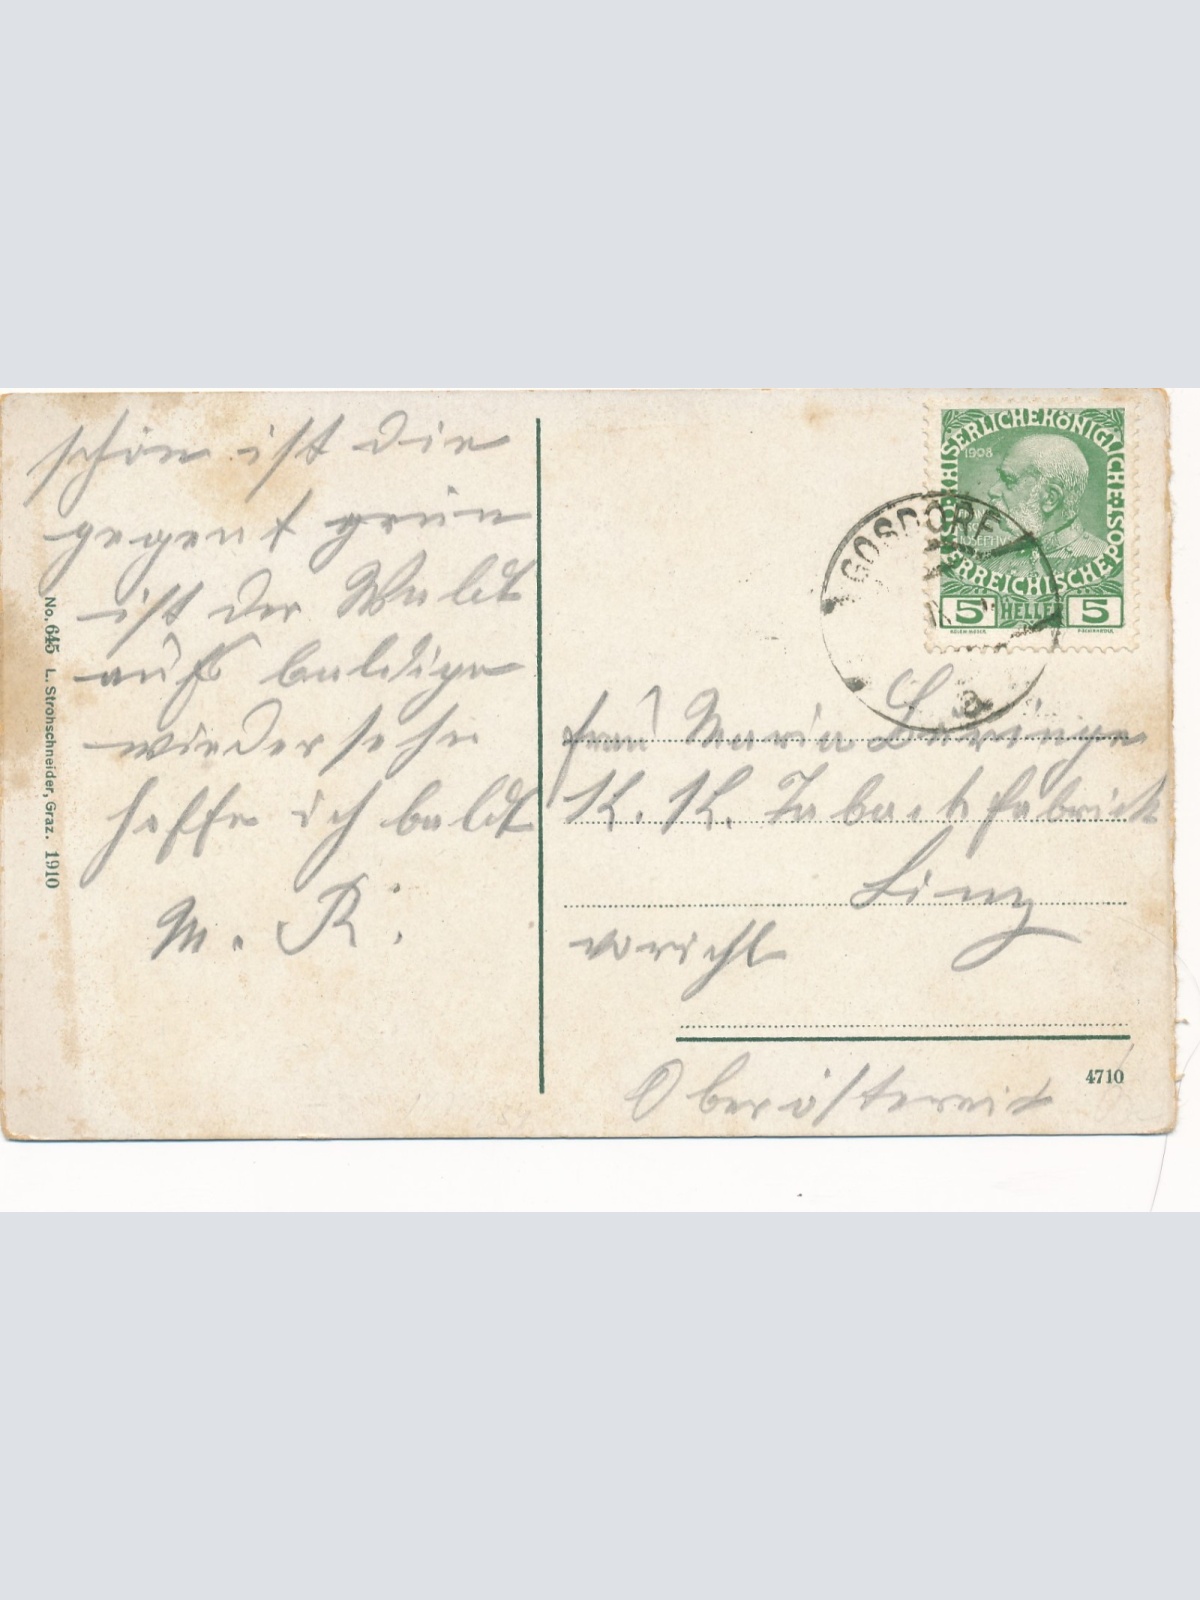 schön ist die
gegent grün
ist der Waldt
aufs baldige
wiedersehn
hoffe ich baldt
M. R.
No. 645 L. Strohschneider, Graz. 1910
KAISERLICHEKÖNIGLICHE
ÖSTERREICHISCHE POST
1908
5 HELLER 5
GOSDORF
a
Frau Maria
K. K. Taback fabrick
Linz
Oberöstereich
4710